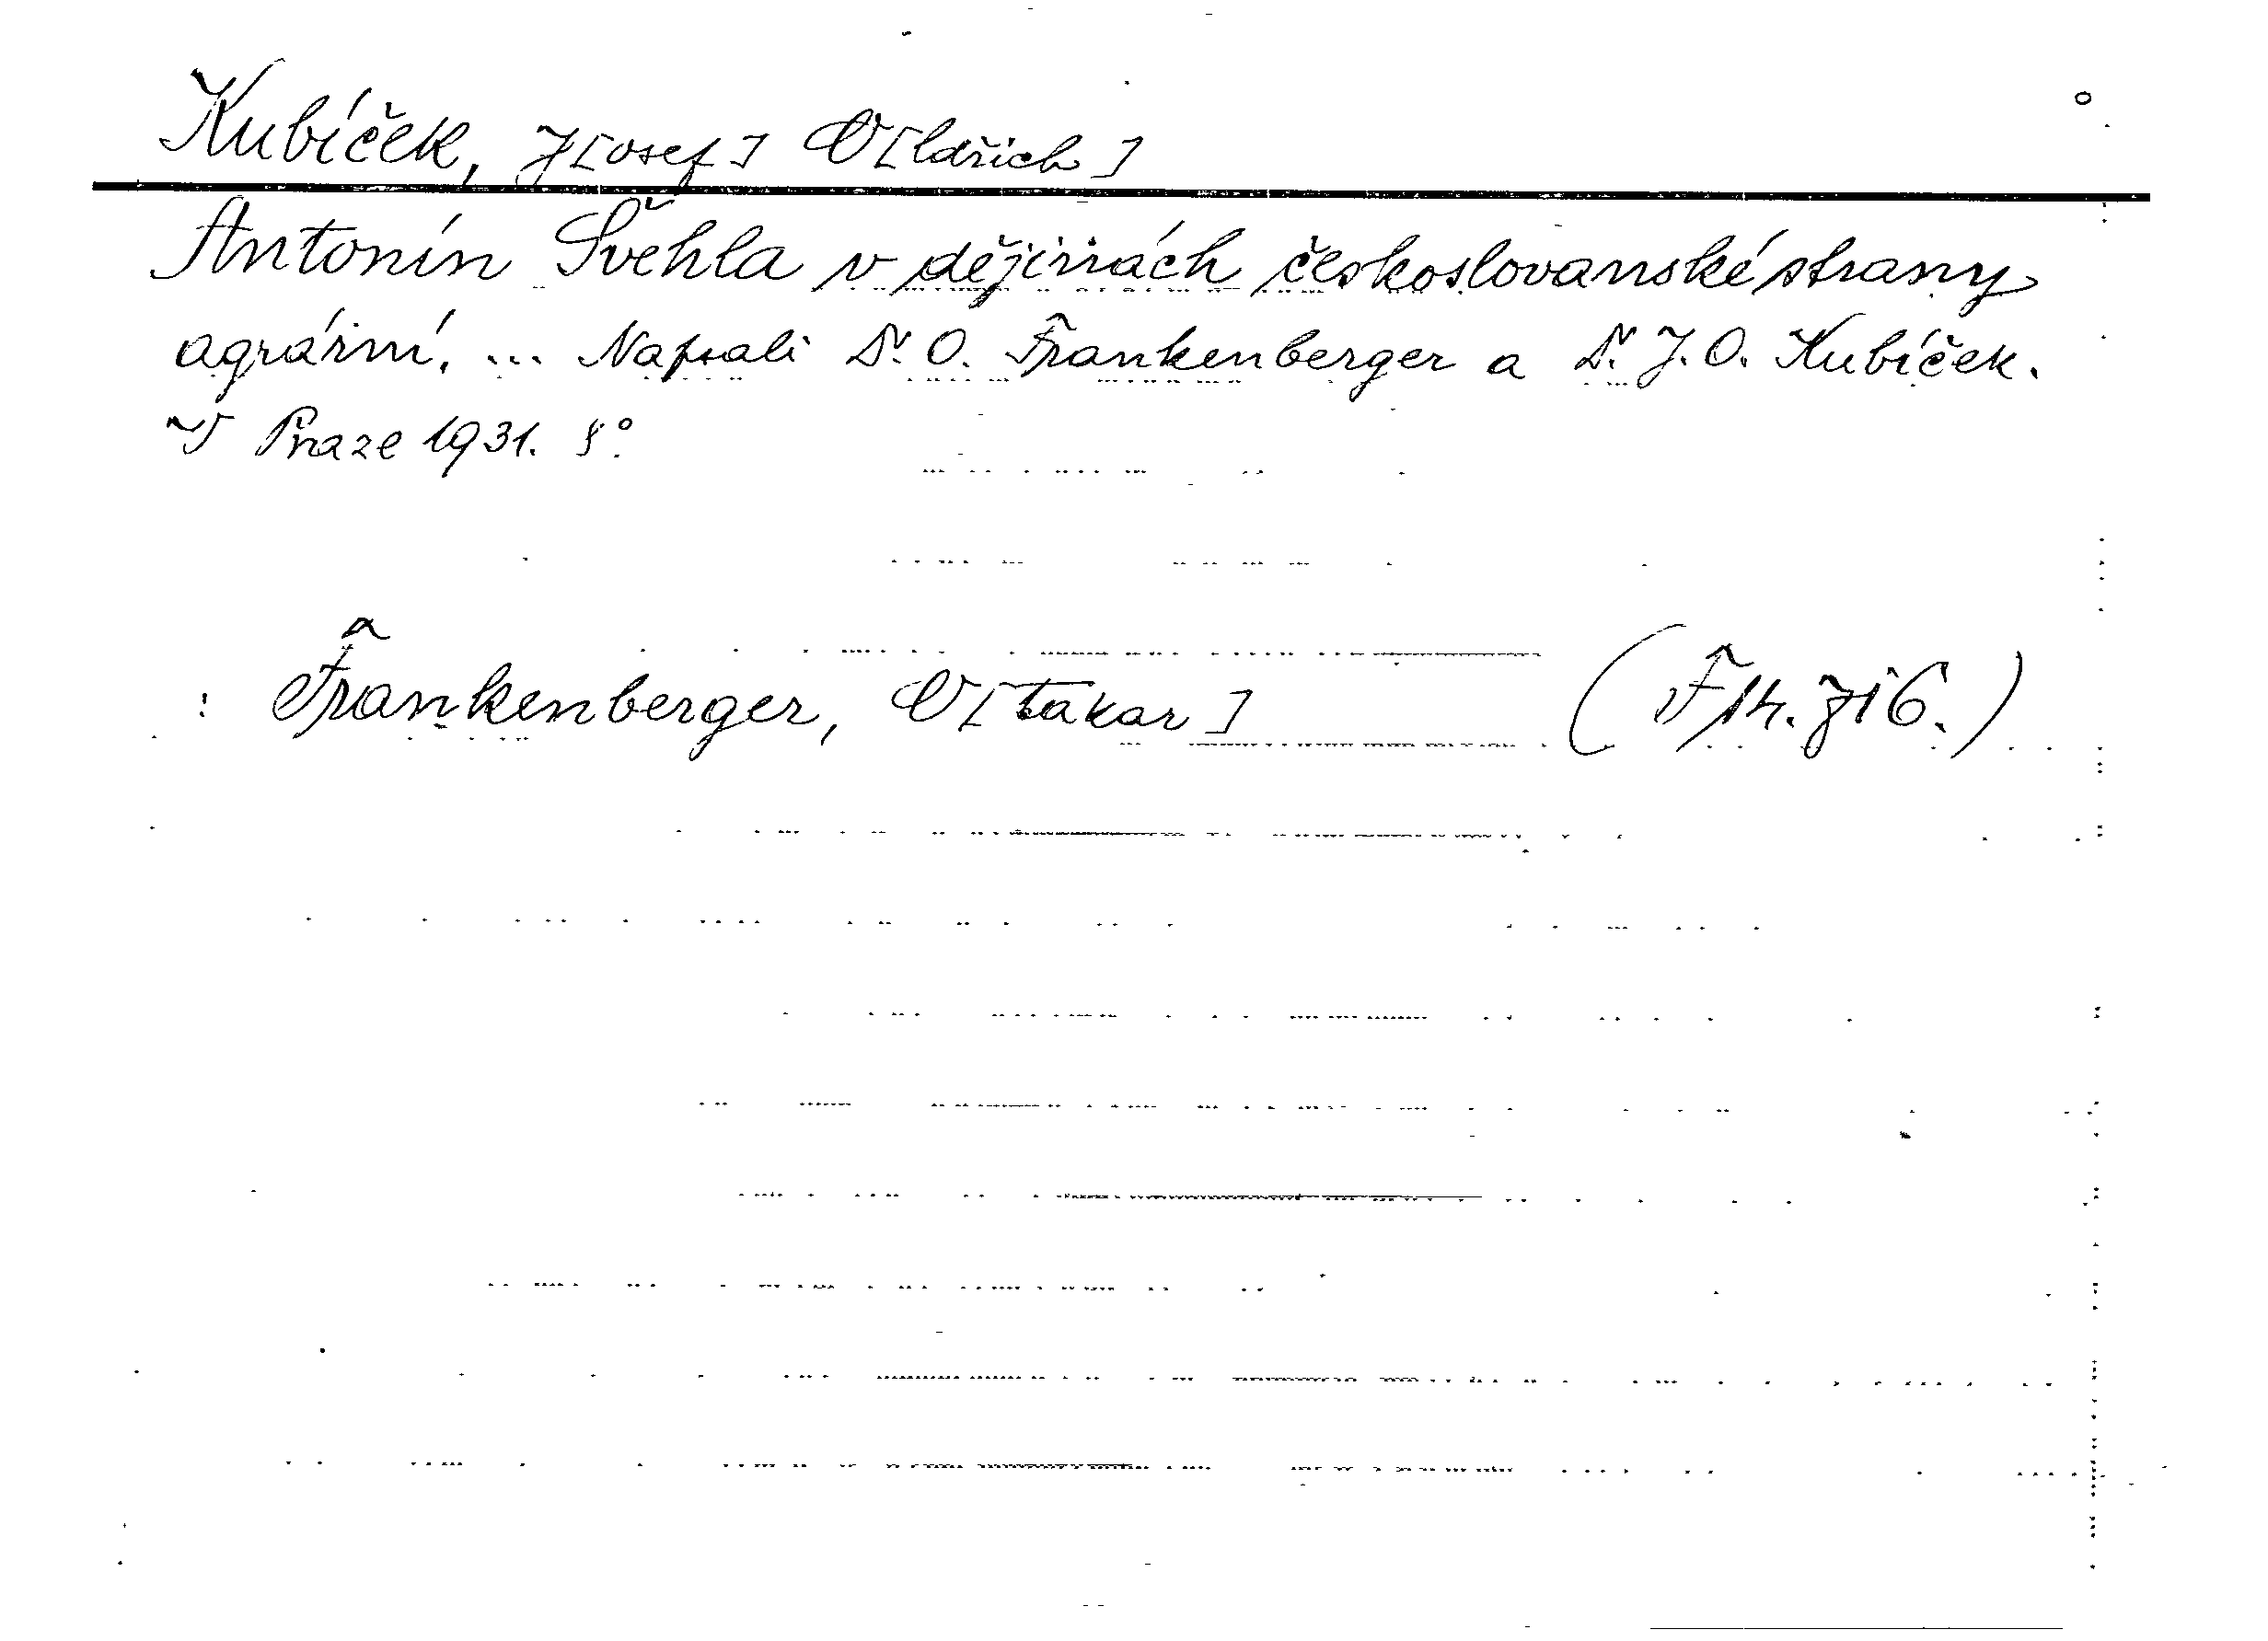 Kubíček, J[osef] O[ldřich]
Antonín Švehla v dějinách českoslovanské strany
agrární. ... Napsali Dr. O. Frankenberger a Dr. J. O. Kubíček.
V Praze 1931. 8°.
: Frankenberger, O[takar]